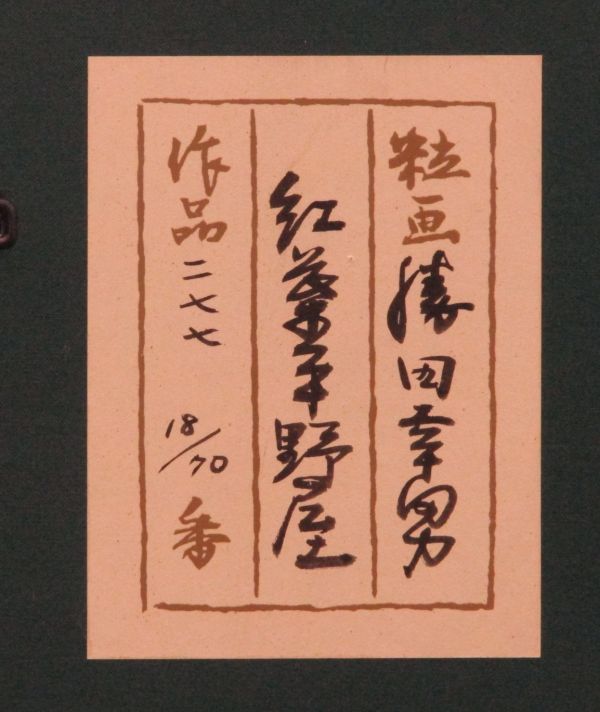 粒画 勝田幸男
紅葉平野屋
作品二七七 18/70 番